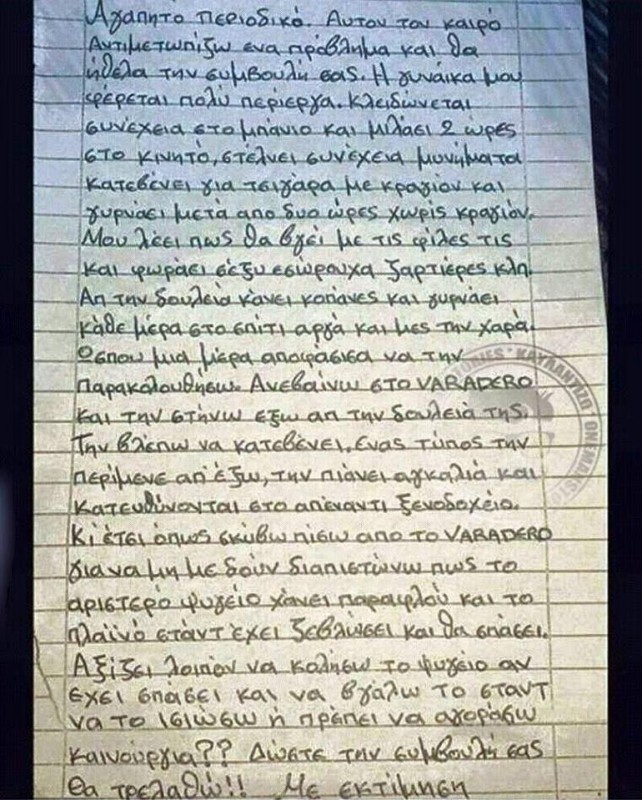 Αγαπητο περιοδικό. Αυτον τον καιρό
Αντιμετωπίζω ενα πρόβλημα και θα
ήθελα την συμβουλή σας. Η γυναίκα μου
φέρεται πολύ περίεργα. Κλειδώνεται
συνέχεια στο μπάνιο και μιλάει 2 ώρες
στο κινητό, στέλνει συνέχεια μυνήματα
κατεβένει για τσιγάρα με κραγιόν και
γυρνάει μετά απο δυο ώρες χωρίς κραγιόν.
Μου λέει πως θα βγεί με τις φίλες τις
και φωράει σέξυ εσώρουχα ζαρτιέρες κλπ.
Απ την δουλειά κάνει κοπάνες και γυρνάει
κάθε μέρα στο σπίτι αργά και μες την χαρά.
Ωσπου μια μέρα αποφάσισα να την
παρακολουθήσω. Ανεβαίνω στο VARADERO
και την στήνω έξω απ την δουλειά της.
Την βλέπω να κατεβένει. Ενας τύπος την
περίμενε απ'έξω, την πιάνει αγκαλιά και
κατευθύνονται στο απέναντι ξενοδοχείο.
Κι έτσι όπως σκύβω πίσω απο το VARADERO
για να μη με δούν διαπιστώνω πως το
αριστερό ψυγείο χάνει παραφλού και το
πλαϊνό στάντ έχει ξεβιώσει και θα σπάσει.
Αξίζει λοιπόν να κολήσω το ψυγείο αν
έχει σπάσει και να βγάλω το σταντ
να το ισιώσω ή πρέπει να αγοράσω
καινούργια?? Δώστε την συμβουλή σας
θα τρελαθώ!! Με εκτίμηση
STORIES * ΚΑΥΛΑΝΤΙΖΩ